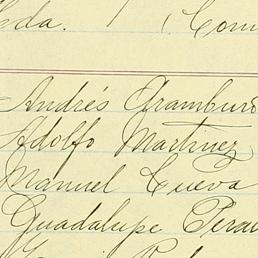 eda. (Com
Andrés Aramburo
Adolfo Martinez
Manuel Cueva
Guadalupe Pera